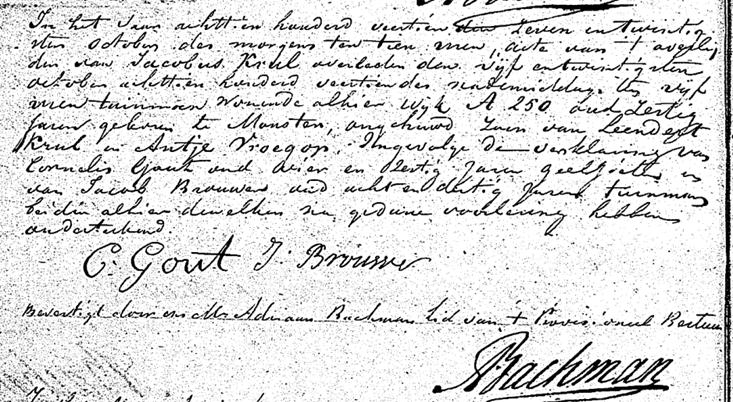 In het jaar achttien honderd veertien den Zeven entwintig
sten october des morgens ten tien uren, acte van 't overlij
den van Jacobus Krul overleeden den vijf entwintigsten
october achttien honderd veertien des nademiddags ten vijf
uren tuinman woonde alhier Wijk A 250 oud Zestig
Jaren geboren te Monster, ongehuwd Zoon van Leendert
Krul en Antje Vroegop, Ingevolge de verklaring van
Cornelis Gout oud vier en Zestig Jaren en
van Jacob Brouwer oud acht en dertig Jaren tuinman
beiden alhier dewelken na gedane voorlezing hebben
onderteekend.
C. Gout J. Brouwer
Bevestigd door ons Mr Adriaan Bachman Lid van 't Provisioneel Bestuur
A Bachman